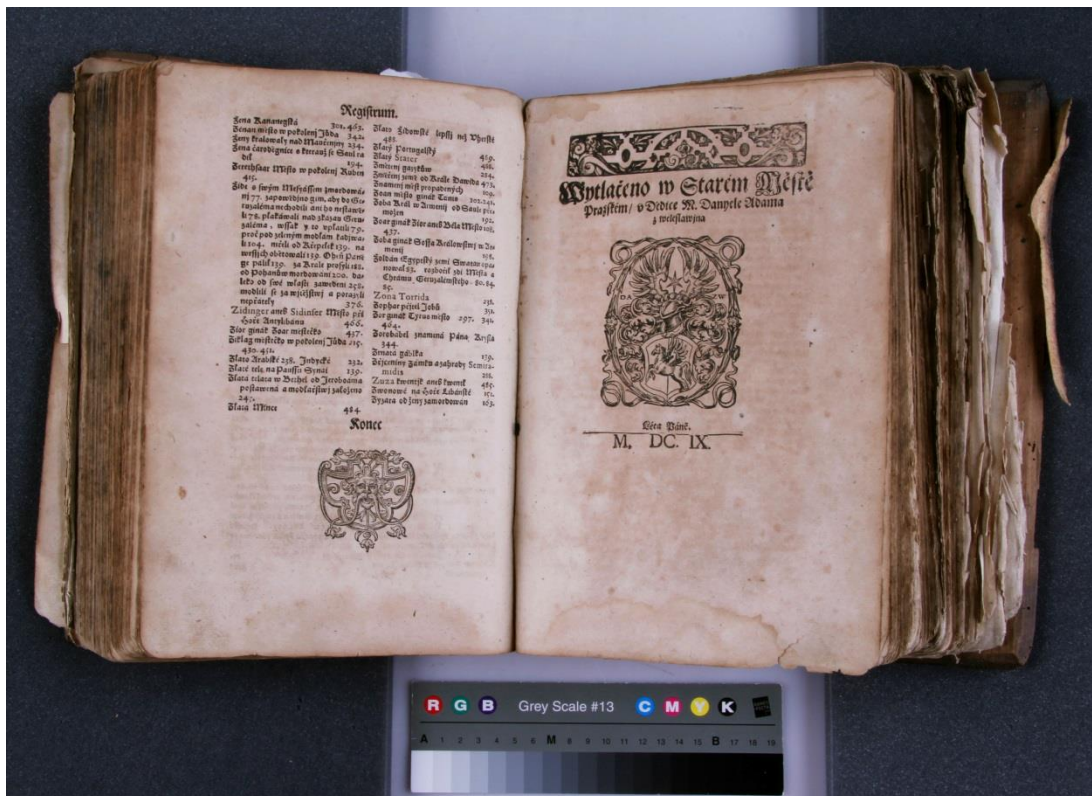 Registrum.
Žena Kananegská 302. 463.
Ženan miesto w pokolenj Júda 342.
Ženy kralowaly nad Mauřenjny 234.
Žena čarodiegnice s kterauž se Saul ra
dil 194.
Zererhsaar Miesto w pokolenj Ruben
415.
Židé o swým Messyássem zmordowá-
nj 77. zapowědjno gim, aby do Ge-
ruzaléma nechodili ani ho nestawě-
li 78. plakáwali nad zkázau Geru-
zaléma, wssak y to vplatili 79.
proč pod zeleným modlám kadjwa-
li 104. měli od Křepelek 139. na
wrssjch obětowali 159. Oheň Pan-
ge pálil 139. za Krále prosyli 182.
od Pohanůw mordowáni 200. da-
leko od swé wlasti zawedeni 258.
modlili se za wjtězstwj a porazyli
nepřátely 376.
Zidinger aneb Sidinser Miesto při
Hoře Antylibánu 466.
Žior ginák Zoar miestečko 437.
Ziklag miestečko w pokolenj Júda 215.
430. 451.
Zlato Arabské 238. Indycké 232.
Zlaté tele na Paussti Synai 139.
Zlatá telata w Bethel od Jeroboáma
postawená a modlářstwj založeno
247.
Zlatá Mince 484
Konec
Zlato Židowské lepssj než Vherské
488.
Zlatý Portugalský 489.
Zlatý Stater 486.
Změtenj gazyků 224.
Zničenj země od Krále Dawida 473.
Znamenj měst propadených 109.
Zoan miesto ginák Tanis 202. 241.
Zoba Král w Armenij od Saule pře-
možen 192.
Zoar ginák Zior aneb Béla Miesto 108.
437.
Zoba ginák Soffa Králowstwj w Ar-
menij
Zoldán Egyptský zemi Swatau opa-
nowal 83. rozbořil zdi Miesta a
Chrámu Geruzalémského. 80. 84.
85.
Zona Torrida 232.
Zophar přítel Jobů 352.
Zor ginák Tyrus miesto 297. 341.
464.
Zorobábel znamená Pána Krysta
344.
Zrnatá gablka 159.
Zřjceniny Zámku a zahrady Semira-
midis 212.
Zuza kwentjk aneb kwentl 485.
Zwonowé na Hoře Libánské 151.
Zyzara od ženy zamordowán 163.
Wytlačeno w Starém Městě
Pražském / v Dědice M. Danyele Adama
z Weleslawjna
DA Z W
Léta Páně.
M. DC. IX.
R G B Grey Scale #13 C M Y K
A 1 2 3 4 5 6 M 8 9 10 11 12 13 14 15 B 17 18 19